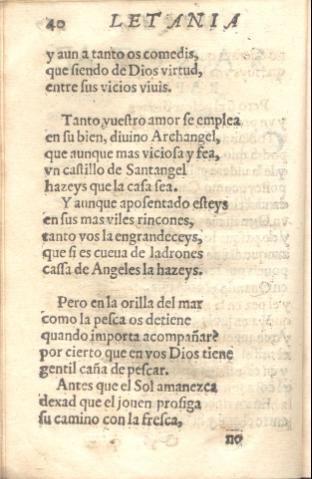 40 LETANIA
y aun a tanto os comedis,
que siendo de Dios virtud,
entre sus vicios viuis.
Tanto vuestro amor se emplea
en su bien, diuino Archangel,
que aunque mas viciosa y fea,
vn castillo de Santangel
hazeys que la casa sea.
Y aunque aposentado esteys
en sus mas viles rincones,
tanto vos la engrandeceys,
que si es cueua de ladrones
cassa de Angeles la hazeys.
Pero en la orilla del mar
como la pesca os detiene
quando importa acompañar?
por cierto que en vos Dios tiene
gentil caña de pescar.
Antes que el Sol amanezca
dexad que el jouen prosiga
su camino con la fresca,
no